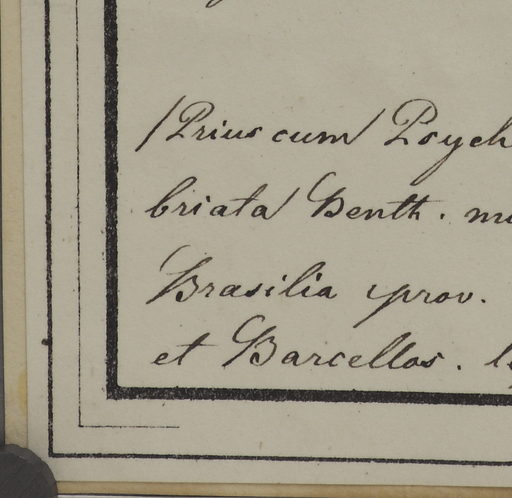 /Prius cum/ Psych
briata/ Benth. m
Brasilia prov.
et Barcellos.